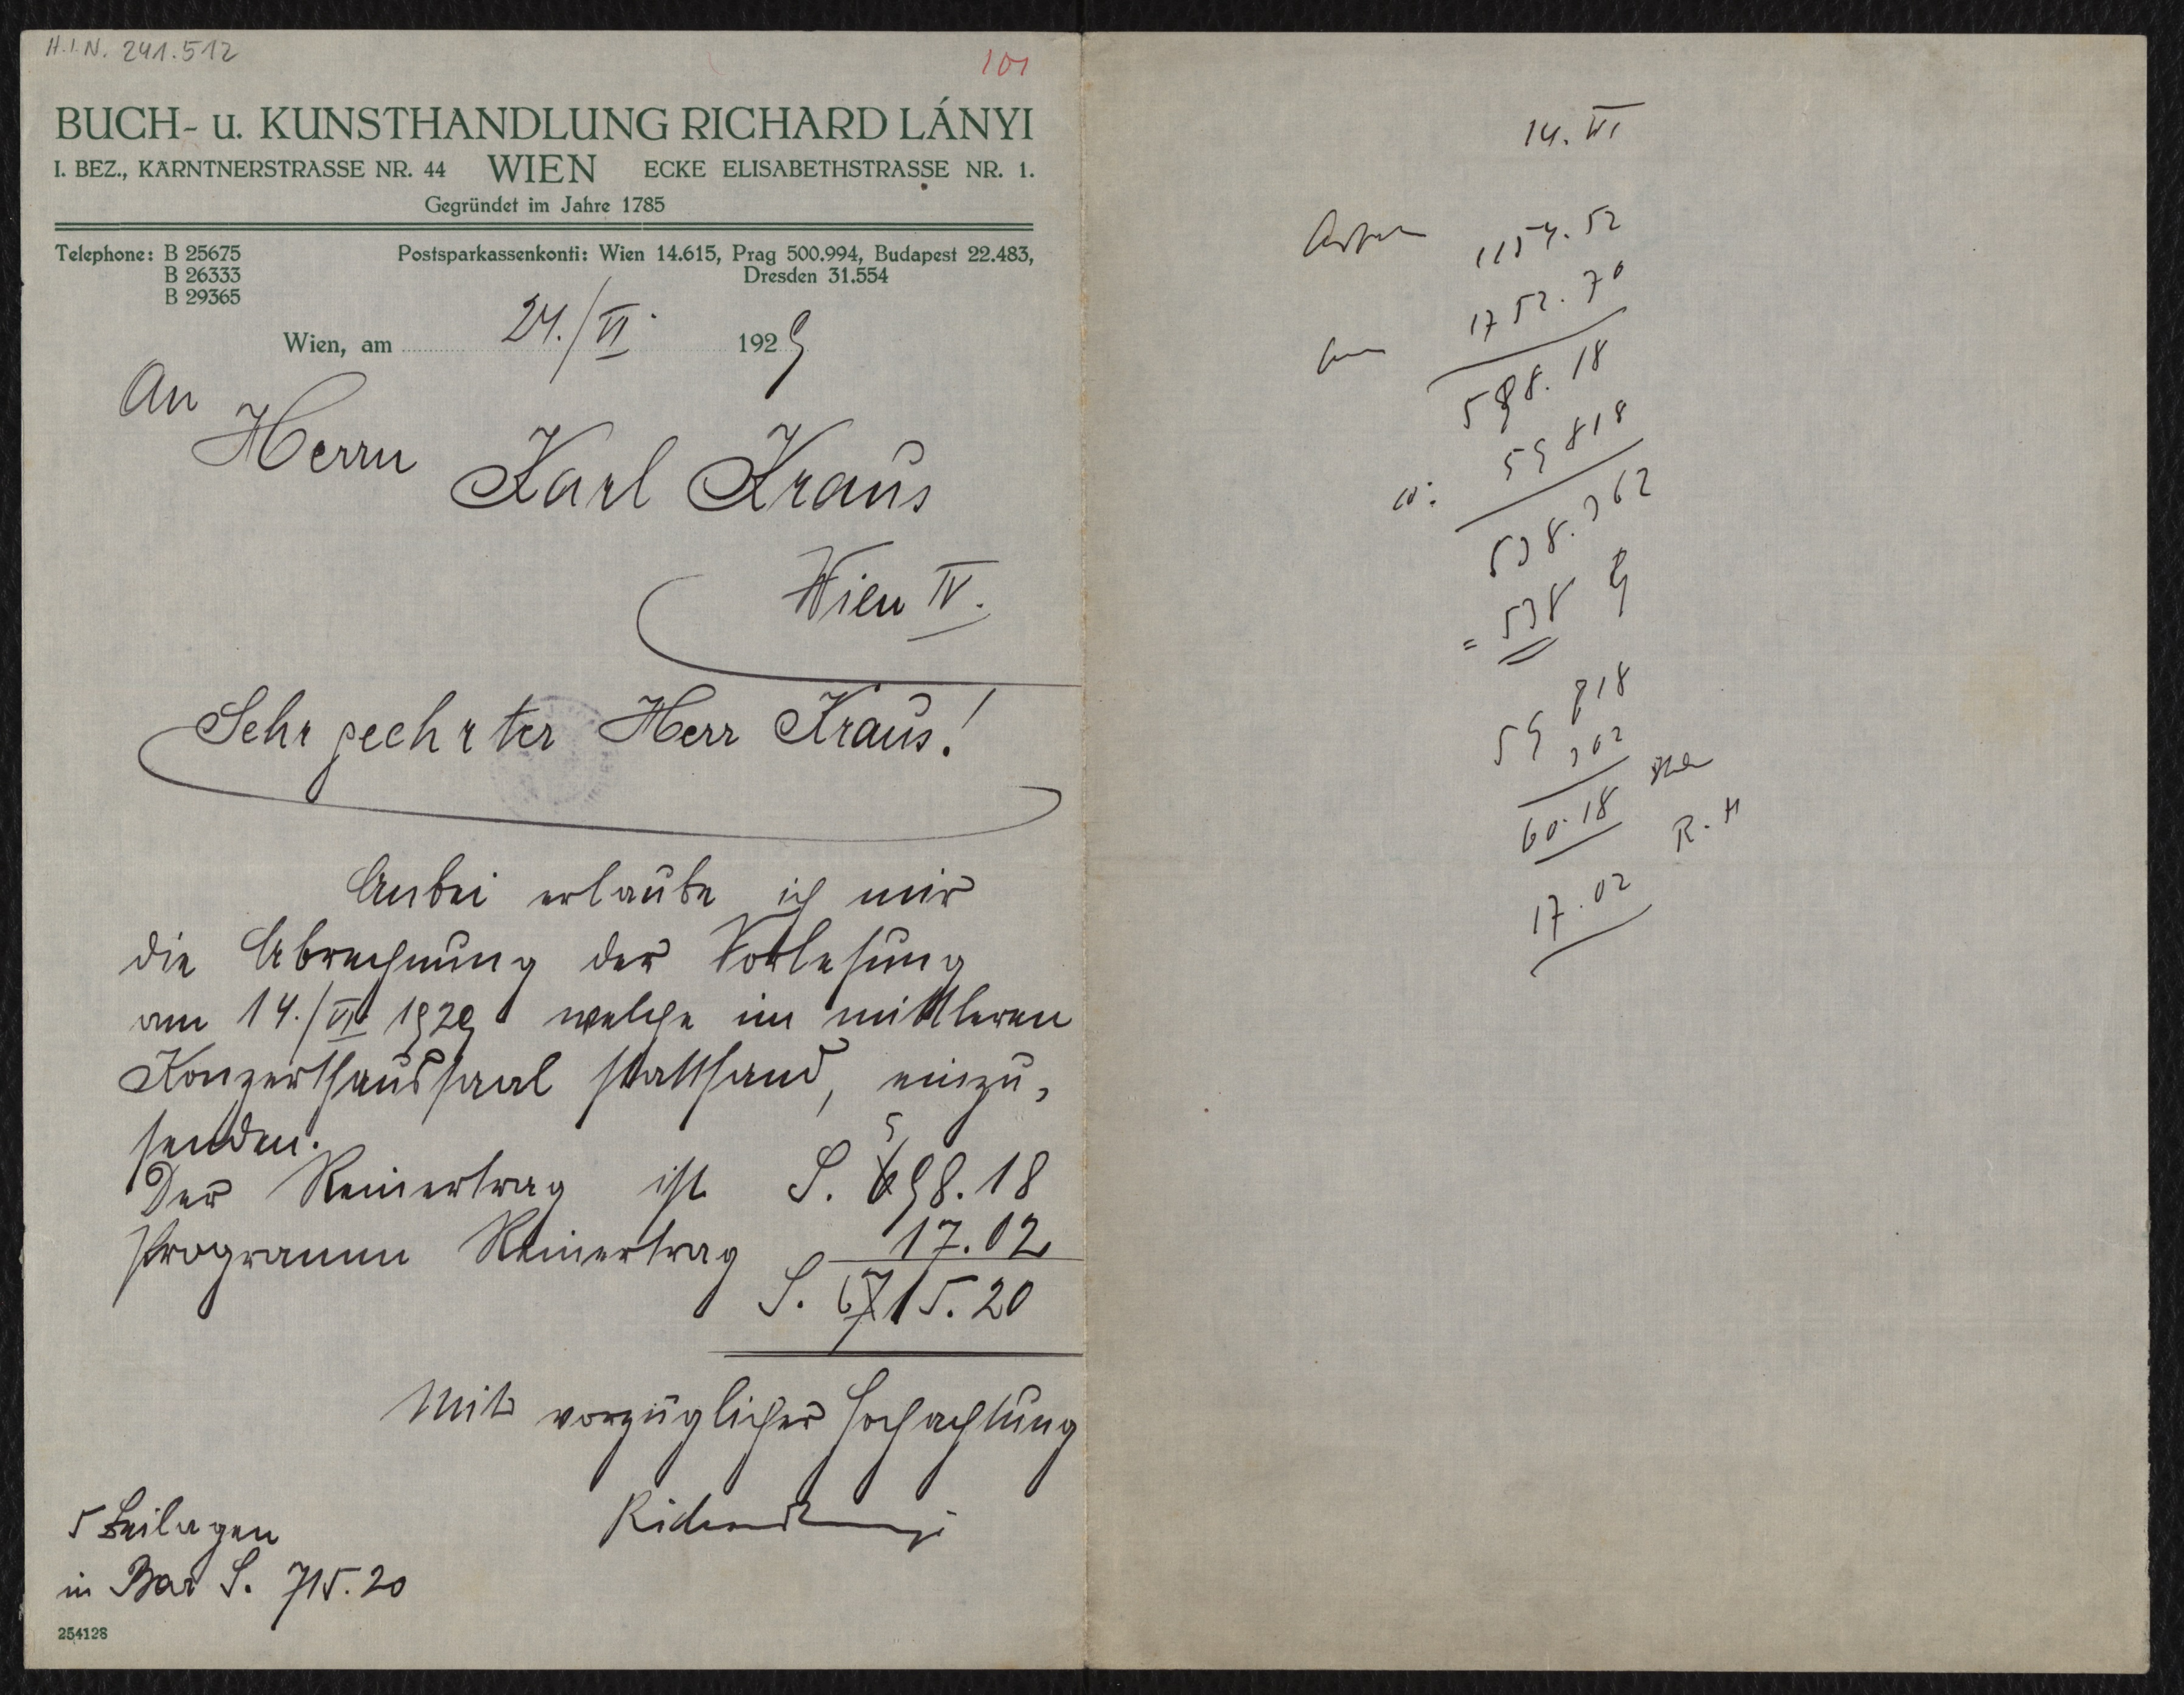 H.I.N. 241.512
101
BUCH- u. KUNSTHANDLUNG RICHARD LÁNYI
I. BEZ., KÄRNTNERSTRASSE NR. 44 WIEN ECKE ELISABETHSTRASSE NR. 1.
Gegründet im Jahre 1785
Telephone: B 25675
B 26333
B 29365
Postsparkassenkonti: Wien 14.615, Prag 500.994, Budapest 22.483,
Dresden 31.554
Wien, am 24./VI. 1929
An
Herrn Karl Kraus
Wien IV.
Sehr geehrter Herr Kraus!
Anbei erlaube ich mir
die Abrechnung der Vorlesung
am 14./VI. 1929 welche im mittleren
Konzerthaussaal stattfand, einzu-
senden.
Der Reinertrag ist S. 598.18
Programm Reinertrag 17.02
S. 615.20
Mit vorzüglicher Hochachtung
Richard Lányi
5 Beilagen
in Bar S. 715.20
254128
14. VI
1154.52
1752.70
598.18
59 818
538.362
= 538
59 818
302
60.18
R. H
17.02